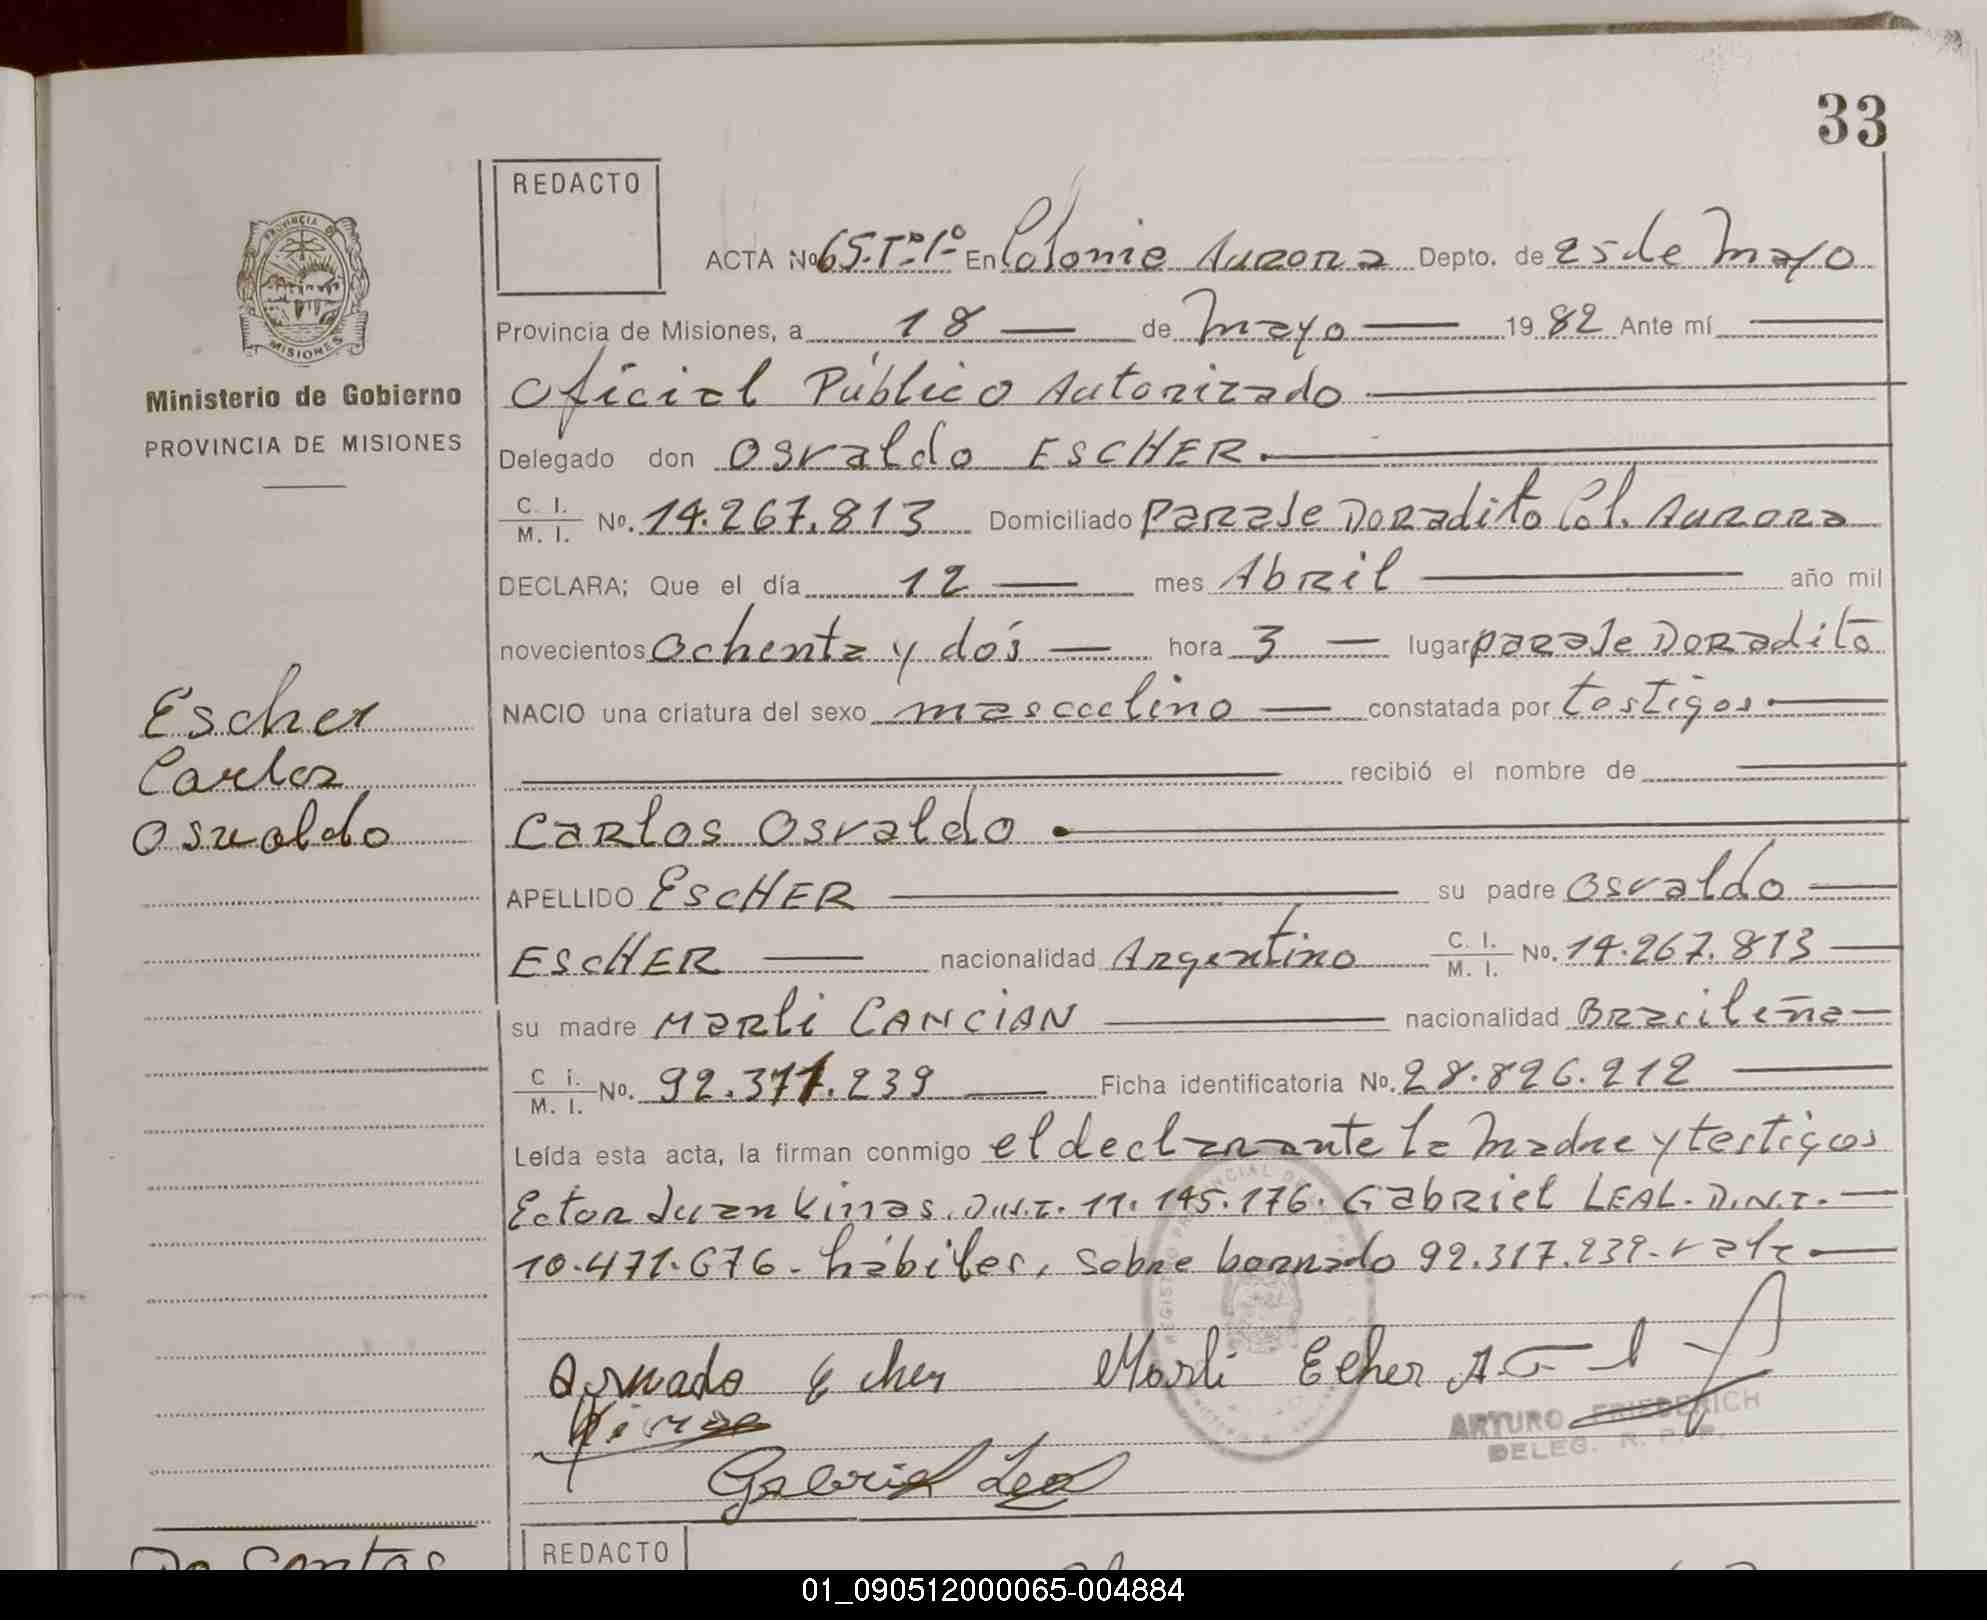 33
REDACTO
ACTA Nº 65.Tº.1º En Colonia Aurora Depto. de 25 de Mayo
Provincia de Misiones, a 18 — de Mayo — 19 82 Ante mí —
Oficial Público Autorizado —
Delegado don Osvaldo ESCHER. —
C. I. / M. I. Nº. 14.267.813 Domiciliado Paraje Doradito Col. Aurora
DECLARA; Que el día 12 — mes Abril — año mil
novecientos ochenta y dós — hora 3 — lugar paraje Doradito
NACIO una criatura del sexo masculino — constatada por testigos. —
— recibió el nombre de —
Carlos Osvaldo. —
APELLIDO ESCHER — su padre Osvaldo —
ESCHER — nacionalidad Argentino C. I. / M. I. Nº. 14.267.813 —
su madre Marli CANCIAN — nacionalidad Brasileña —
C i. / M. I. Nº. 92.317.239 — Ficha identificatoria Nº. 28.826.212 —
Leída esta acta, la firman conmigo el declarante la Madre y testigos
Ector Juan Kinas. D.N.I. 11.145.176. Gabriel LEAL. D.N.I. —
10.471.676. hábiles, sobre borrado 92.317.239. vale —
Marli Echer
Kinas
ARTURO FRIEDERICH
DELEG. R. P. P.
Gabriel Leal
PROVINCIA DE
MISIONES
Ministerio de Gobierno
PROVINCIA DE MISIONES
Escher
Carlos
Osvaldo
REDACTO
01_090512000065-004884